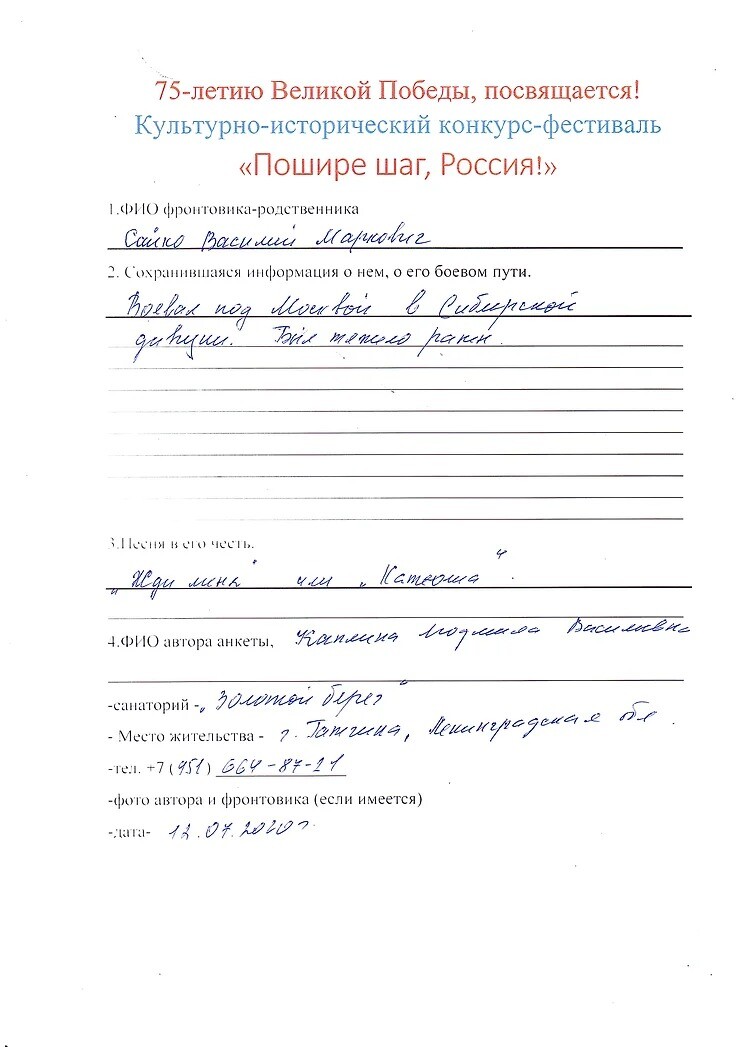 75-летию Великой Победы, посвящается!
Культурно-исторический конкурс-фестиваль
«Пошире шаг, Россия!»
1.ФИО фронтовика-родственника
Сайко Василий Маркович
2. Сохранившаяся информация о нем, о его боевом пути.
Воевал под Москвой в Сибирской
дивизии. Был тяжело ранен.
3.Песня в его честь.
„Жди меня" или „Катюша".
4.ФИО автора анкеты, Каплина Людмила Васильевна
-санаторий - „Золотой берег"
- Место жительства - г. Гатчина, Ленинградская обл.
-тел. +7 (951) 664-87-21
-фото автора и фронтовика (если имеется)
-дата- 12.07.2020г